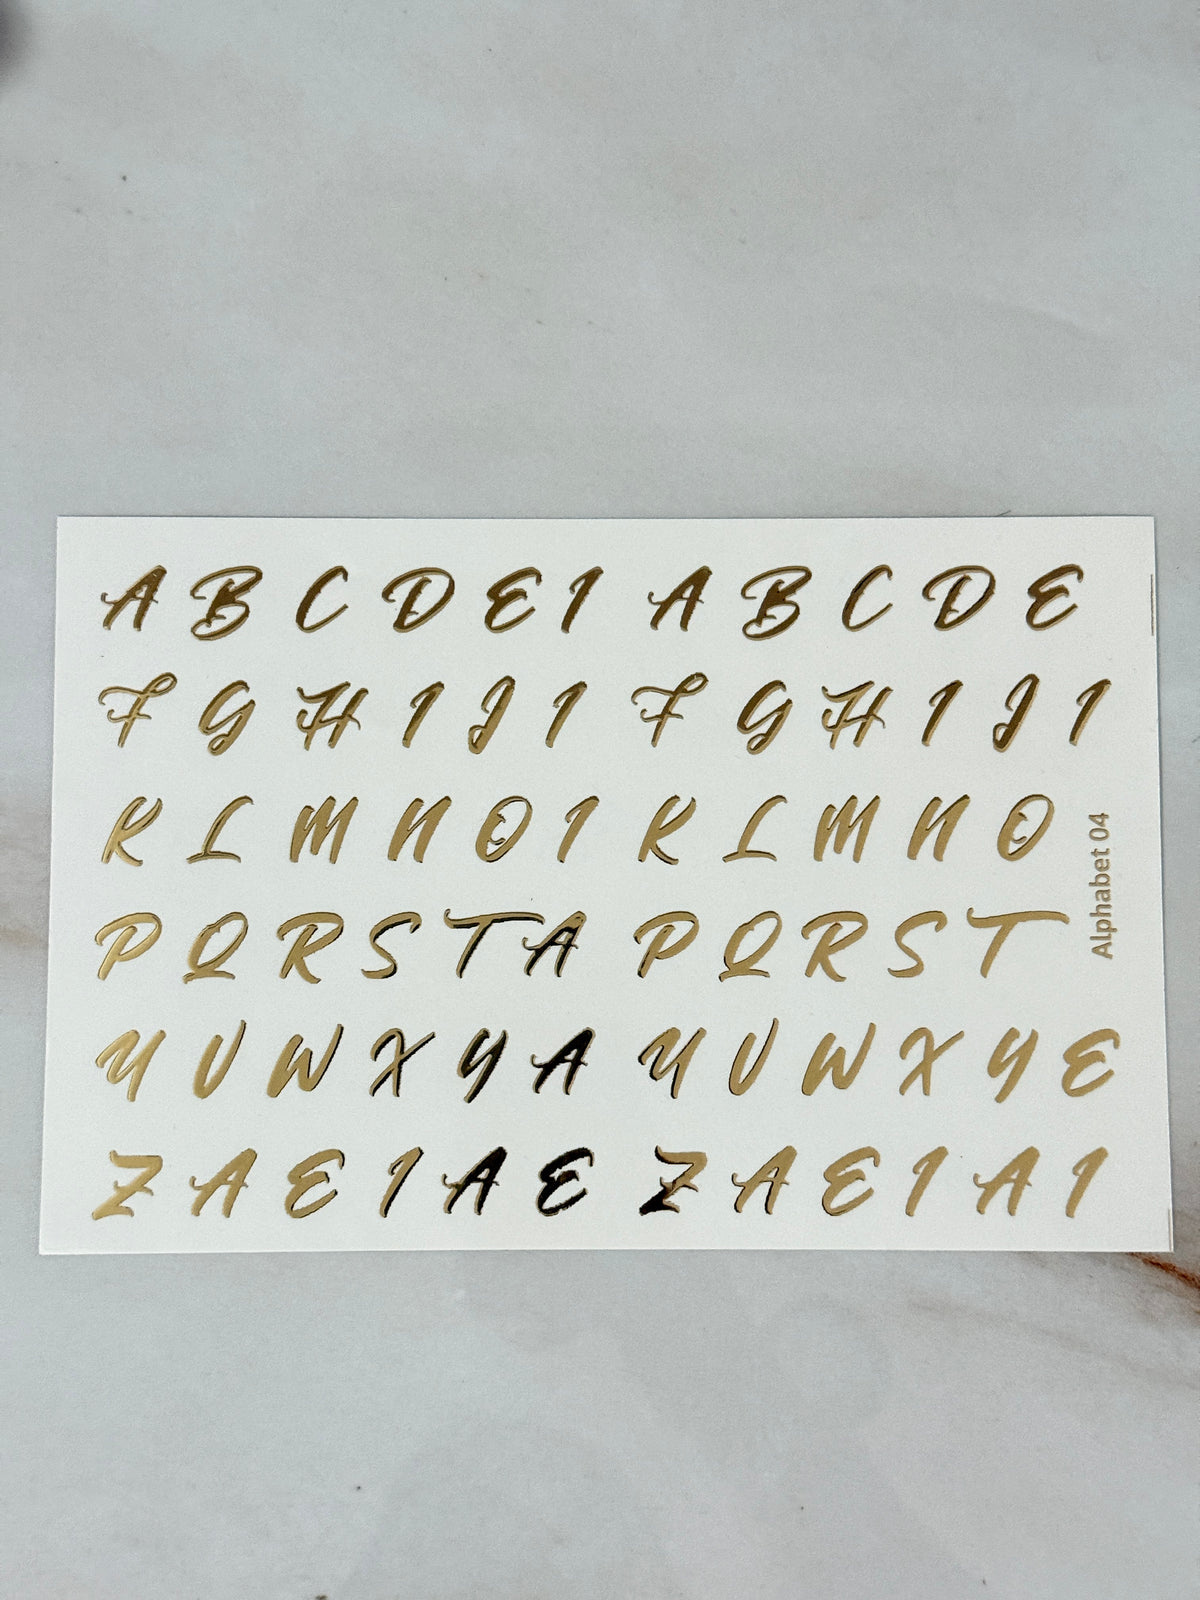 A B C D E I A B C D E
F G H I J I F G H I J I
K L M N O I K L M N O
P Q R S T A P Q R S T
U V W X Y A U V W X Y E
Z A E I A E Z A E I A I
Alphabet 04